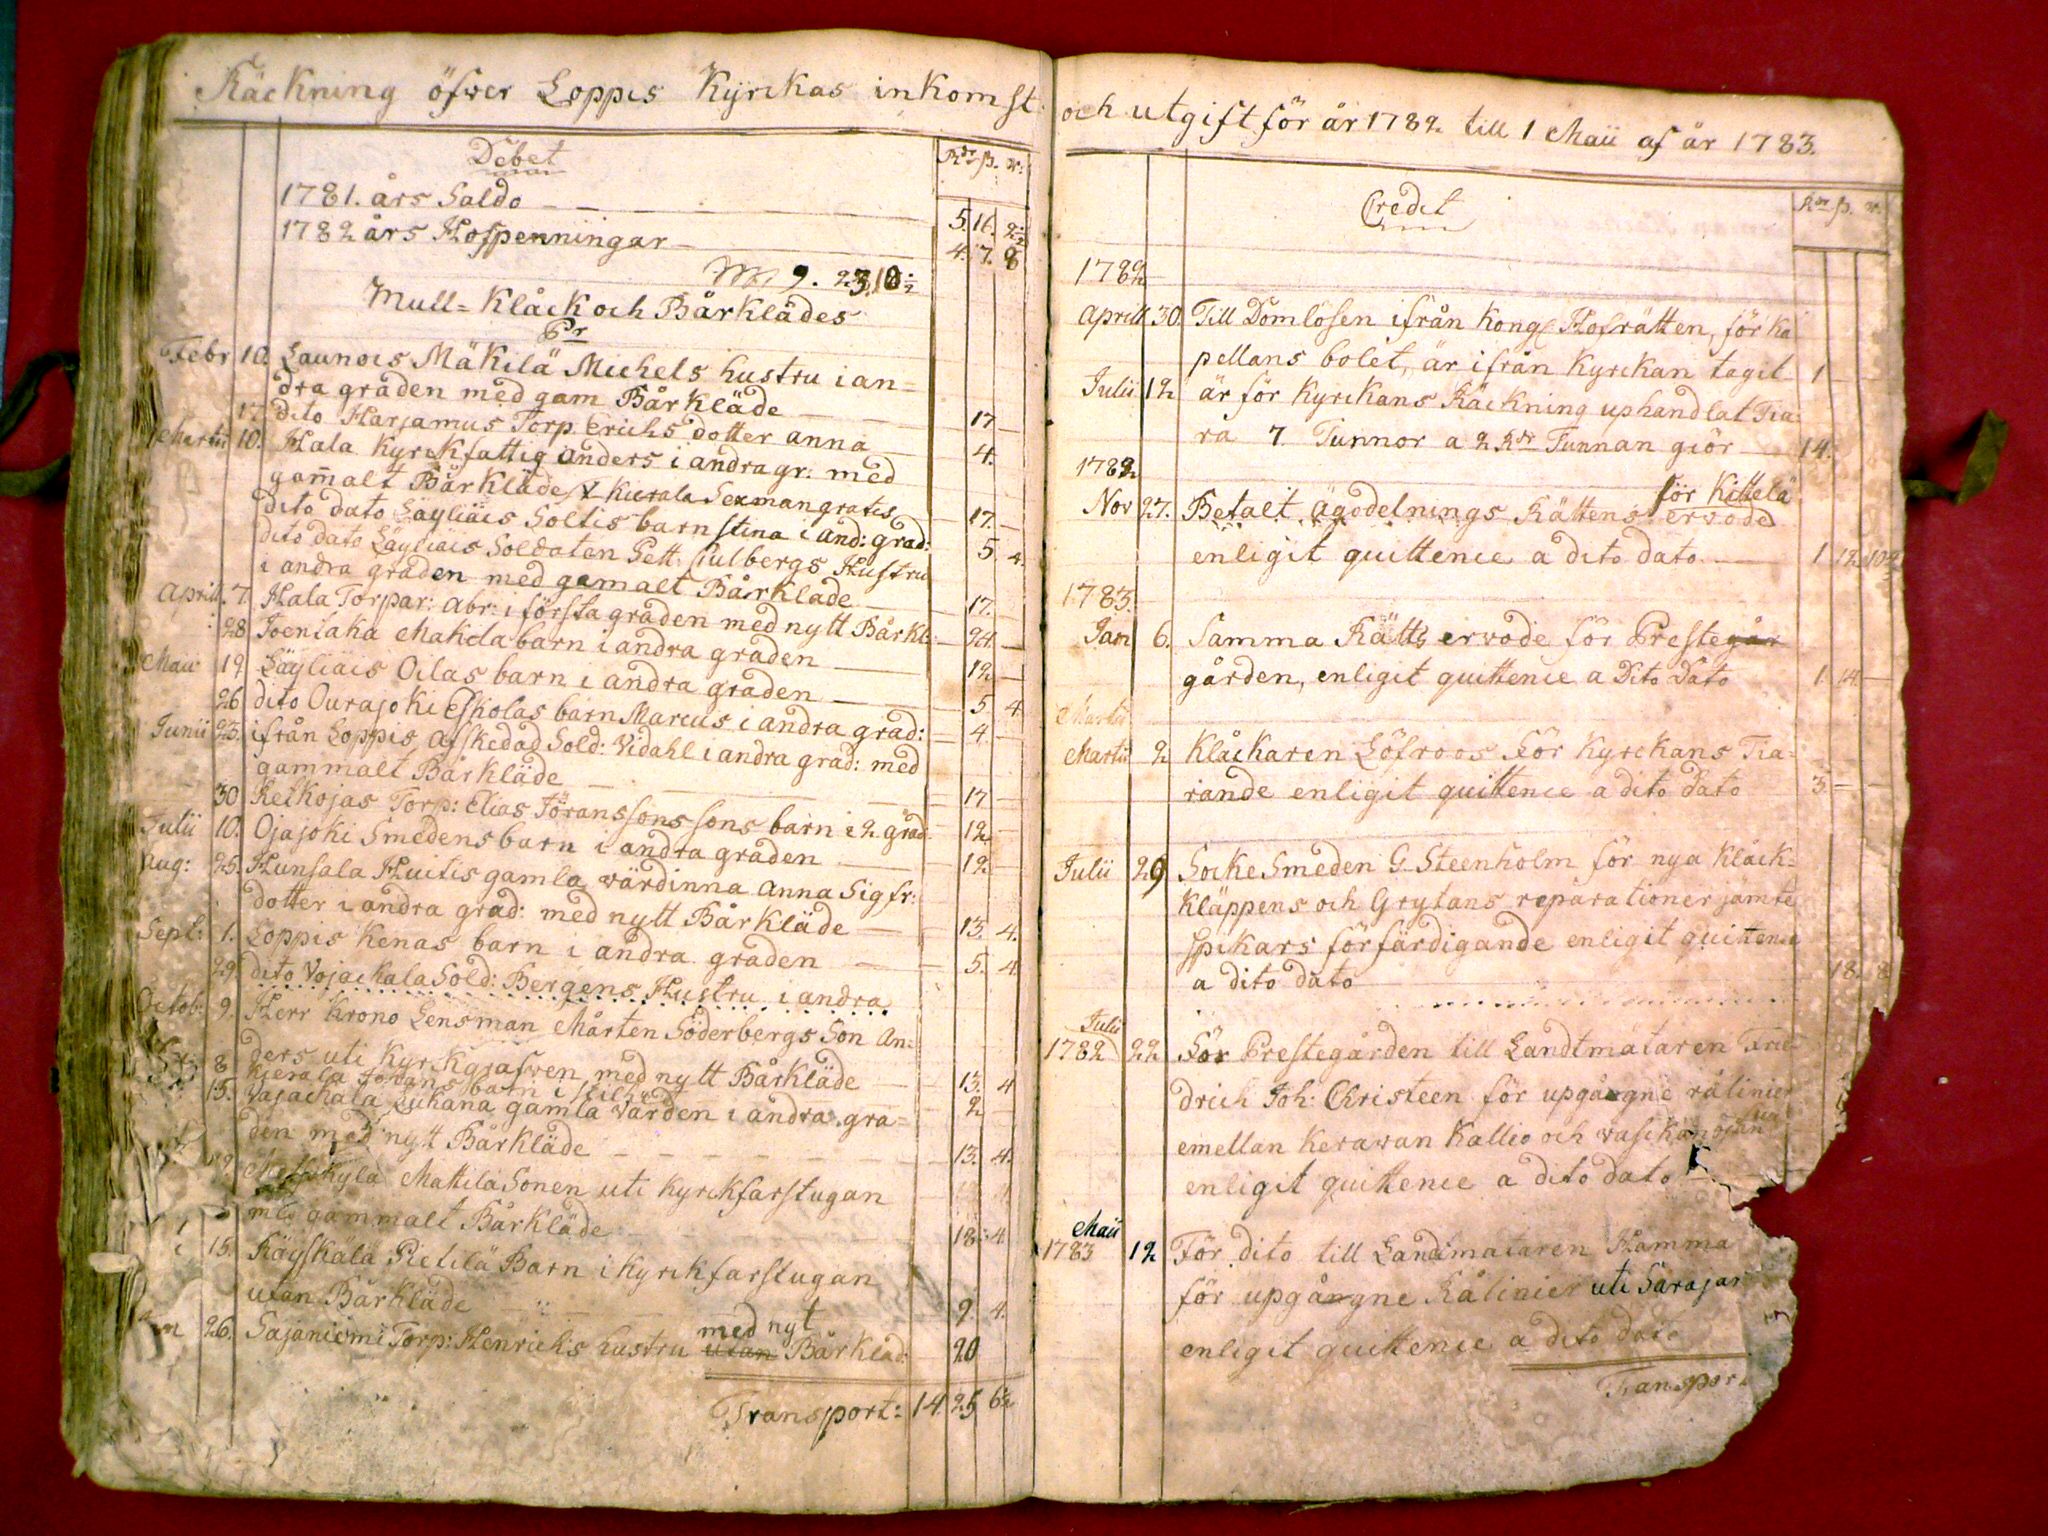 Räckning öfwer Loppis Kyrckas inkomst och utgift för år 1782 till 1 Maii af år 1783.
Debet
Rdr ß. r:
1781. års Saldo 5. 16. 2½
1782 års Hospenningar 4. 7. 8
9. 23 10½
Mull= Klåck och Bårklädes
Pr
Febr 10. Launois Mäkilä Michels hustru i an=
dra graden med gam Bårkläde 17
17 dito Harjamus Torp. Erichs dotter anna 4.
Martii 10. Hala Kyrckfattig anders i andra gr: med
gam̄alt Bårkläde, Kuxala Sexman gratis 17.
dito dato Läyliäis Soltis barn stina i and: grad: 5 4.
dito dato Läyliäis Soldaten Pett: Culbergs Hustru
i andra graden med gamalt Bårkläde 17.
Aprill. 7 Hala Torpar: Abr: i första graden med nytt Bårkl: 24.
28 Joentaka Makela barn i andra graden 12
Maii 12 Läyliäis Oilas barn i andra graden 5 4
26 dito Ourajoki Eskolas barn Marcus i andra grad: 4
Junii 23. ifrån Loppis afskedad Sold: Vidahl i andra grad: med
gammalt Bårkläde 17
30 Keikojas Torp: Elias Jöranssons sons barn i 2 grad 12
Julii 10. Ojajoki Smedens barn i andra graden 12
Aug: 25. Hunsala Huitis gamla wärdinna Anna Sigfr:
dotter i andra grad: med nytt Bårkläde 13 4.
Sept: 1. Loppis Kenas barn i andra graden 5. 4
29 dito Vojackala Sold: Bergens Hustru i andra
Octob: 9. Herr Krono Lensman Mårten Söderbergs Son An=
ders uti Kyrkgrafwen med nytt Bårkläde 13. 4
8 barn i 2
15. Vajackala Luhana gamla värden i andra gra=
den med nytt Bårkläde 13. 4.
Mettäkylä Mattila Sonen uti Kyrckfarstugan
med gammalt Bårkläde 18. 4
15. Räyskälä Pietilä Barn i Kyrckfarstugan
utan Bårkläde 9. 4.
med nyt
26. Sajaniemi Torp: Henrichs hustru utan Bårkläd: 20
Transport: 14 25 6½
Credit
Rdr ß. r.
1782
Aprill 30. Till Domlösen ifrån Kongl Hofrätten, för Ka
pellans bolet, är ifrån Kyrckan tagit 1
Julii 12 är för Kyrckans Räckning uphandlat Tia=
ra 7 Tunnor a 2 Rdr Tunnan giör 14.
1782
för Kittelä
Nov 27. Betalt Ägodelnings Rättens arwode
enligit quittence a dito dato 1 12 10
1783.
Jan 6. Samma Rätts arwode för Prestegår
gården, enligit quittence a Dito Dato 1 14
Martii
Martii 2 Klåckaren Löfroos för Kyrckans Tia=
rande enligit quittence a dito dato 3.
Julii 29 Socke Smeden G. Steenholm för nya Klåck=
kläppens och Grytans reparationer jämte
Spikars förfärdigande enligit quittence
a dito dato 18. 8
Julii
1782 22 För Prestegården till Landtmätaren Frie
drich Joh: Christeen för upgångne rålinier
emellan Kerawan Kallio och
enligit quittence a dito dato
Maii
1783 12 För dito till Landtmätaren Hamma
för upgångne Rålinier uti Särajär
enligit quittence a dito dato
Transport